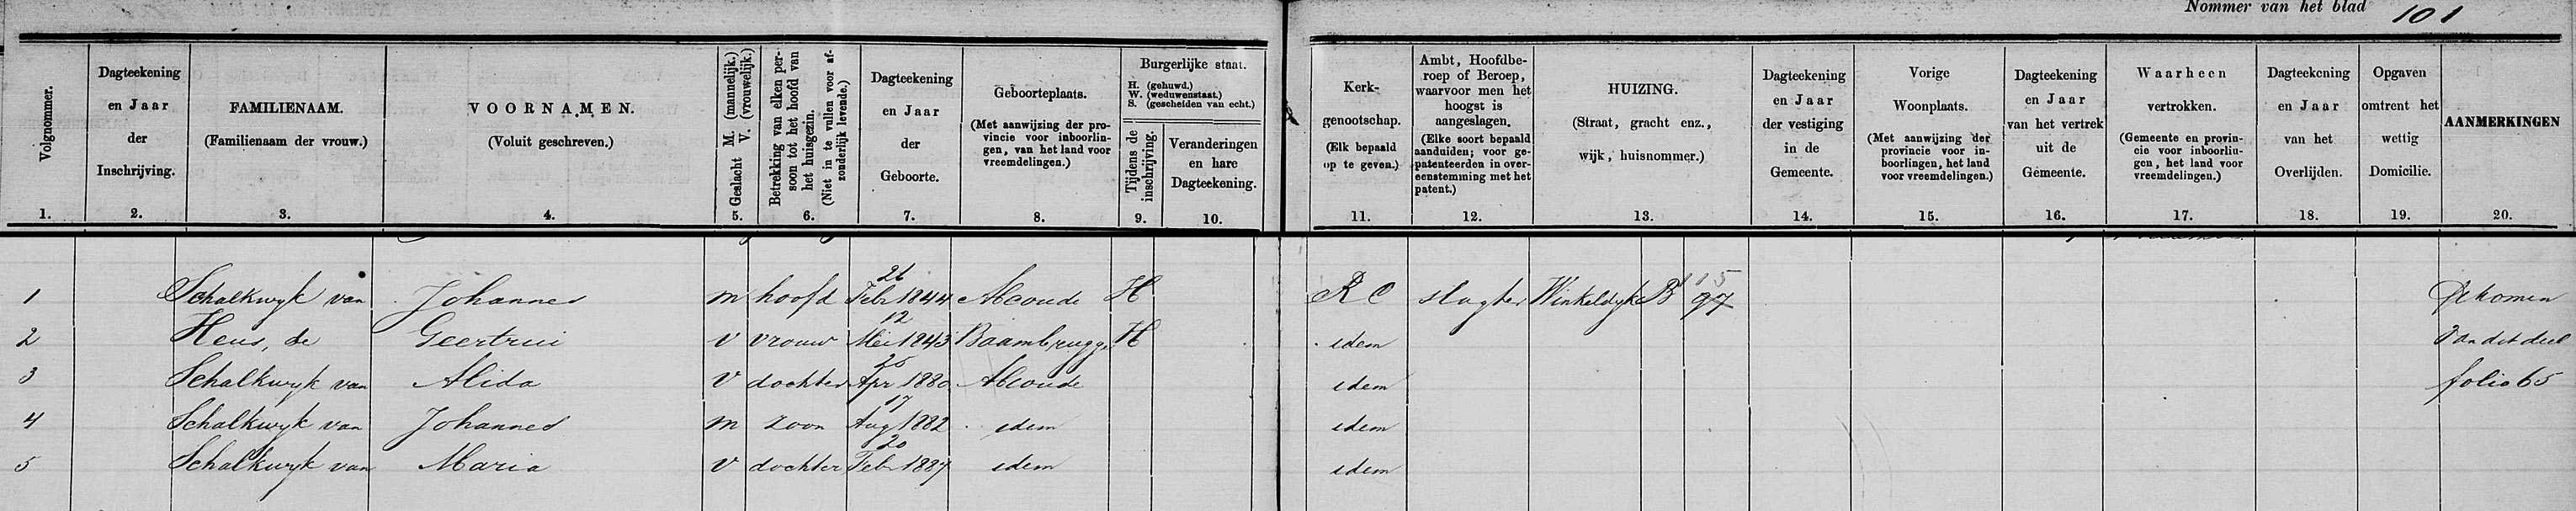 Nommer van het blad 101
Volgnommer.
1.
Dagteekening
en Jaar
der
Inschrijving.
2.
FAMILIENAAM.
(Familienaam der vrouw.)
3.
VOORNAMEN.
(Voluit geschreven.)
4.
Geslacht M. (mannelijk.)
V. (vrouwelijk.)
5.
Betrekking van elken per-
soon tot het hoofd van
het huisgezin.
(Niet in te vullen voor af-
zonderlijk levende.)
6.
Dagteekening
en Jaar
der
Geboorte.
7.
Geboorteplaats.
(Met aanwijzing der pro-
vincie voor inboorlin-
gen, van het land voor
vreemdelingen.)
8.
Burgerlijke staat.
H. (gehuwd.)
W. (weduwenstaat.)
S. (gescheiden van echt.)
Tijdens de
inschrijving.
9.
Veranderingen
en hare
Dagteekening.
10.
Kerk-
genootschap.
(Elk bepaald
op te geven.)
11.
Ambt, Hoofdbe-
roep of Beroep,
waarvoor men het
hoogst is
aangeslagen.
(Elke soort bepaald
aanduiden; voor ge-
patenteerden in over-
eenstemming met het
patent.)
12.
HUIZING.
(Straat, gracht enz.,
wijk, huisnommer.)
13.
Dagteekening
en Jaar
der vestiging
in de
Gemeente.
14.
Vorige
Woonplaats.
(Met aanwijzing der
provincie voor in-
boorlingen, het land
voor vreemdelingen.)
15.
Dagteekening
en Jaar
van het vertrek
uit de
Gemeente.
16.
Waarheen
vertrokken.
(Gemeente en provin-
cie voor inboorlin-
gen, het land voor
vreemdelingen.)
17.
Dagteekening
en Jaar
van het
Overlijden.
18.
Opgaven
omtrent het
wettig
Domicilie.
19.
AANMERKINGEN
20.
1 Schalkwyk van Johannes m hoofd 26 Febr 1844 Abcoude H R C slagter Winkeldyk B 97 115 Gekomen
2 Heus, de Geertrui v vrouw 12 Mei 1843 Baambrugge H idem van dit deel
3 Schalkwyk van Alida v dochter 25 Apr 1880 Abcoude idem folio 65
4 Schalkwyk van Johannes m zoon 17 Aug 1882 idem idem
5 Schalkwyk van Maria v dochter 20 Febr 1887 idem idem